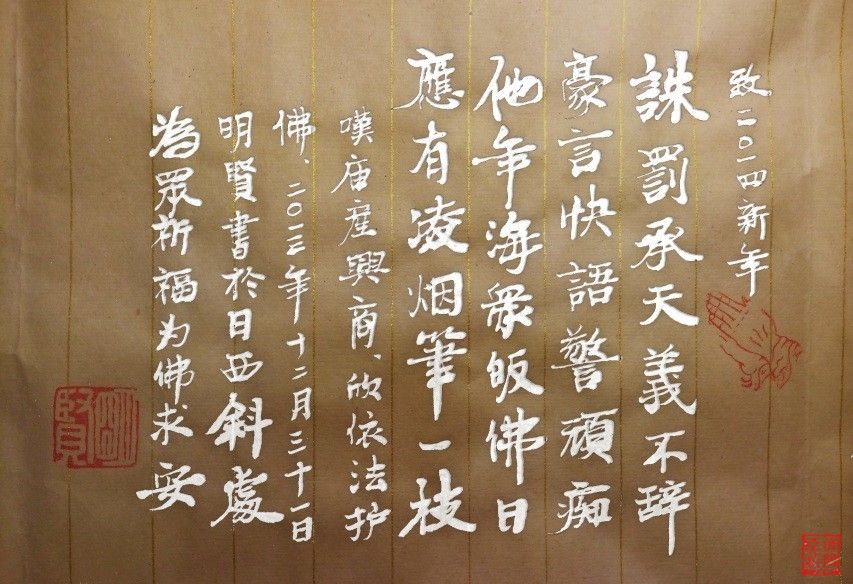 致二〇一四新年
誅罰承天義不辞
豪言快語警頑痴
他年海衆皈佛日
應有凌烟筆一枝
嘆庙産興商、欣依法护
佛、二〇一三年十二月三十一日
明賢書於日西斜處
為眾祈福为佛求安
明賢